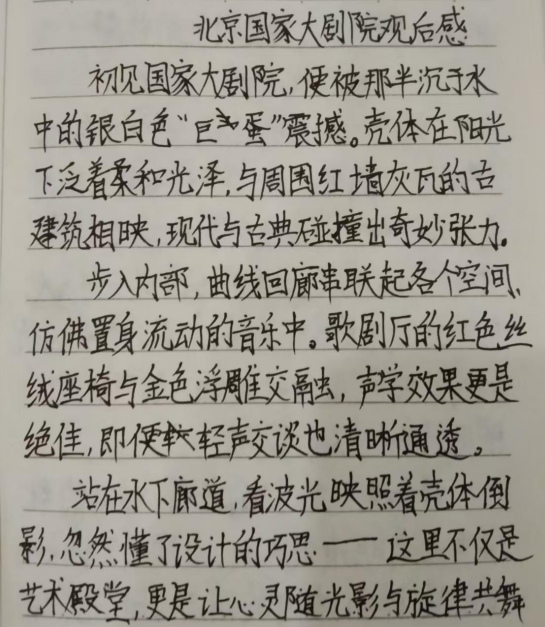 北京国家大剧院观后感
初见国家大剧院，便被那半沉于水
中的银白色“巨蛋”震撼。壳体在阳光
下泛着柔和光泽，与周围红墙灰瓦的古
建筑相映，现代与古典碰撞出奇妙张力。
步入内部，曲线回廊串联起各个空间，
仿佛置身流动的音乐中。歌剧厅的红色丝
绒座椅与金色浮雕交融，声学效果更是
绝佳，即便轻声交谈也清晰通透。
站在水下廊道，看波光映照着壳体倒
影，忽然懂了设计的巧思——这里不仅是
艺术殿堂，更是让心灵随光影与旋律共舞